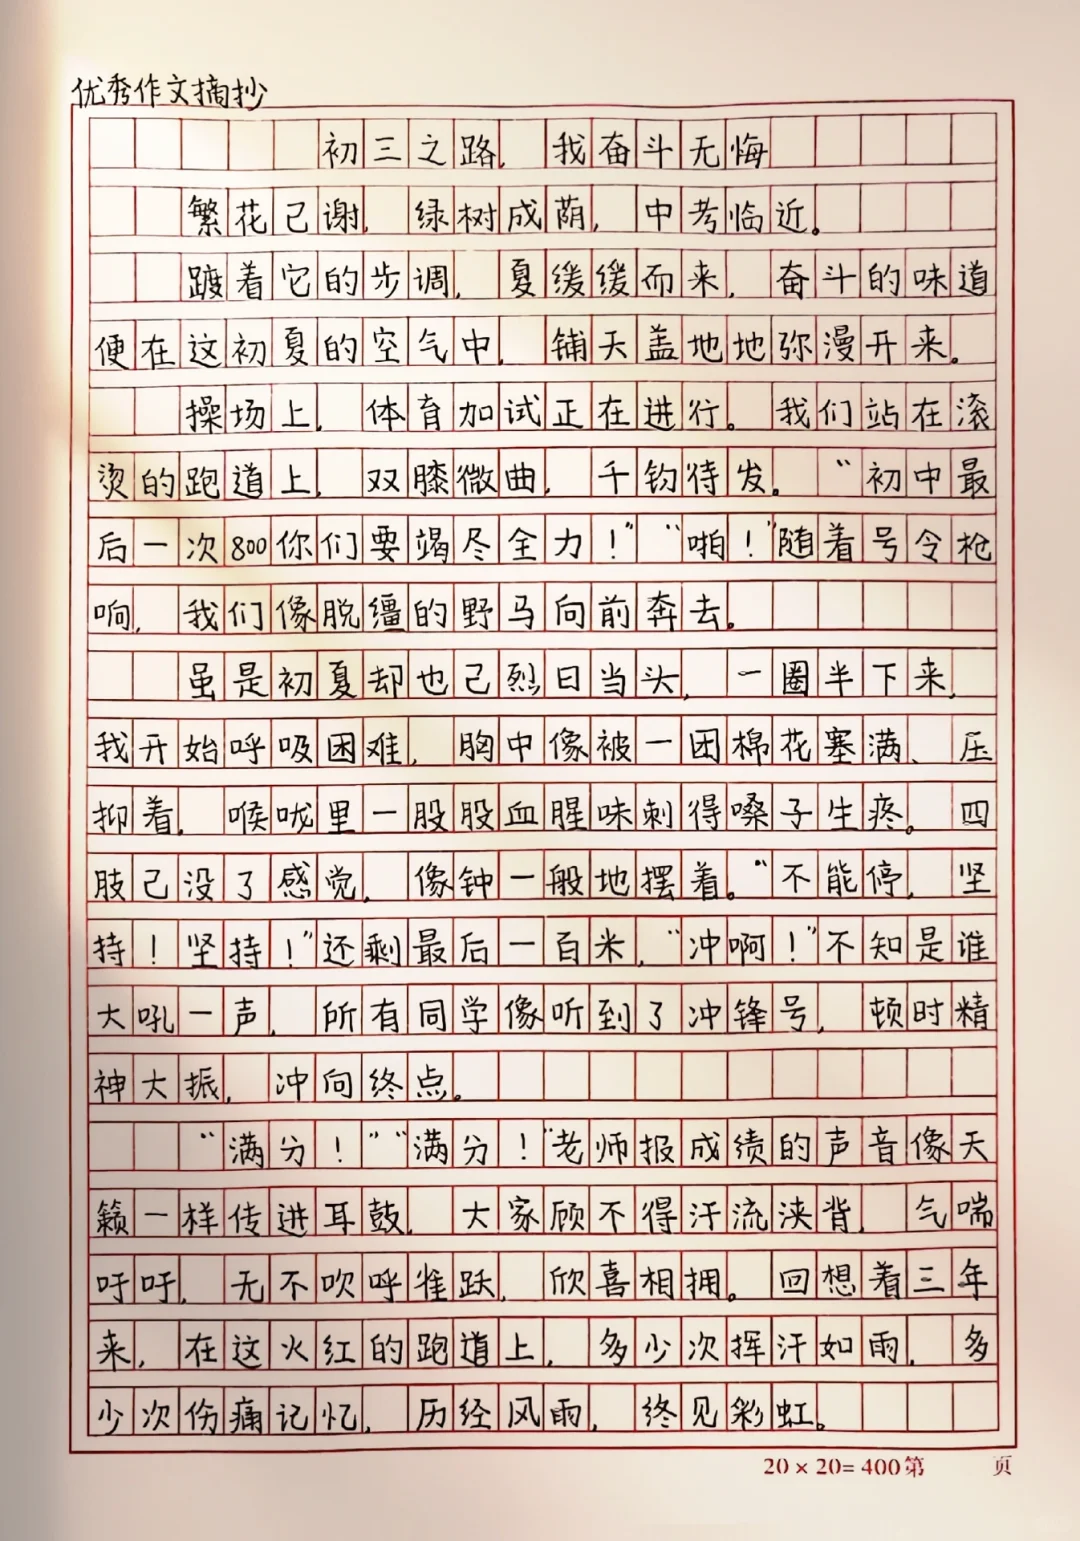 优秀作文摘抄
初三之路，我奋斗无悔
繁花已谢，绿树成荫，中考临近。
踱着它的步调，夏缓缓而来，奋斗的味道
便在这初夏的空气中，铺天盖地地弥漫开来。
操场上，体育加试正在进行。我们站在滚
烫的跑道上，双膝微曲，千钧待发。“初中最
后一次800你们要竭尽全力！”“啪！”随着号令枪
响，我们像脱缰的野马向前奔去。
虽是初夏却也已烈日当头，一圈半下来，
我开始呼吸困难，胸中像被一团棉花塞满、压
抑着，喉咙里一股股血腥味刺得嗓子生疼。四
肢已没了感觉，像钟一般地摆着。“不能停，坚
持！坚持！”还剩最后一百米，“冲啊！”不知是谁
大吼一声，所有同学像听到了冲锋号，顿时精
神大振，冲向终点。
“满分！”“满分！”老师报成绩的声音像天
籁一样传进耳鼓，大家顾不得汗流浃背，气喘
吁吁，无不吹呼雀跃，欣喜相拥。回想着三年
来，在这火红的跑道上，多少次挥汗如雨，多
少次伤痛记忆，历经风雨，终见彩虹。
20×20=400第 页